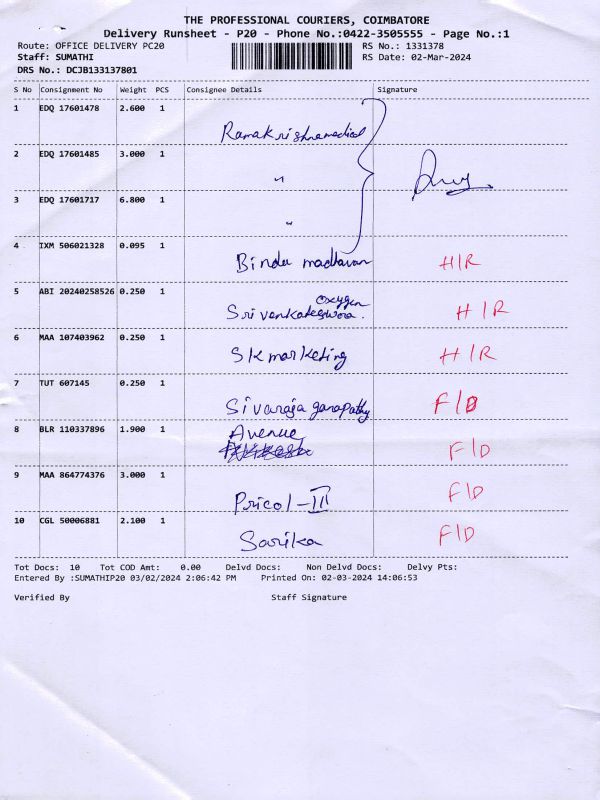 THE PROFESSIONAL COURIERS, COIMBATORE
Delivery Runsheet - P20 - Phone No.:0422-3505555 - Page No.:1
Route: OFFICE DELIVERY PC20 RS No.: 1331378
Staff: SUMATHI RS Date: 02-Mar-2024
DRS No.: DCJB133137801
S No Consignment No Weight PCS Consignee Details Signature
1 EDQ 17601478 2.600 1
Ramakrishnamedical
2 EDQ 17601485 3.000 1
"
3 EDQ 17601717 6.800 1
"
4 IXM 506021328 0.095 1
Bindu madhavan H/R
5 ABI 20240258526 0.250 1
oxygen
Srivenkateswara. H/R
6 MAA 107403962 0.250 1
SK marketing H/R
7 TUT 607145 0.250 1
Sivaraja ganapathy F/D
8 BLR 110337896 1.900 1
Avenue F/D
9 MAA 864774376 3.000 1
Pricol-III F/D
10 CGL 50006881 2.100 1
Sarika F/D
Tot Docs: 10 Tot COD Amt: 0.00 Delvd Docs: Non Delvd Docs: Delvy Pts:
Entered By :SUMATHIP20 03/02/2024 2:06:42 PM Printed On: 02-03-2024 14:06:53
Verified By Staff Signature